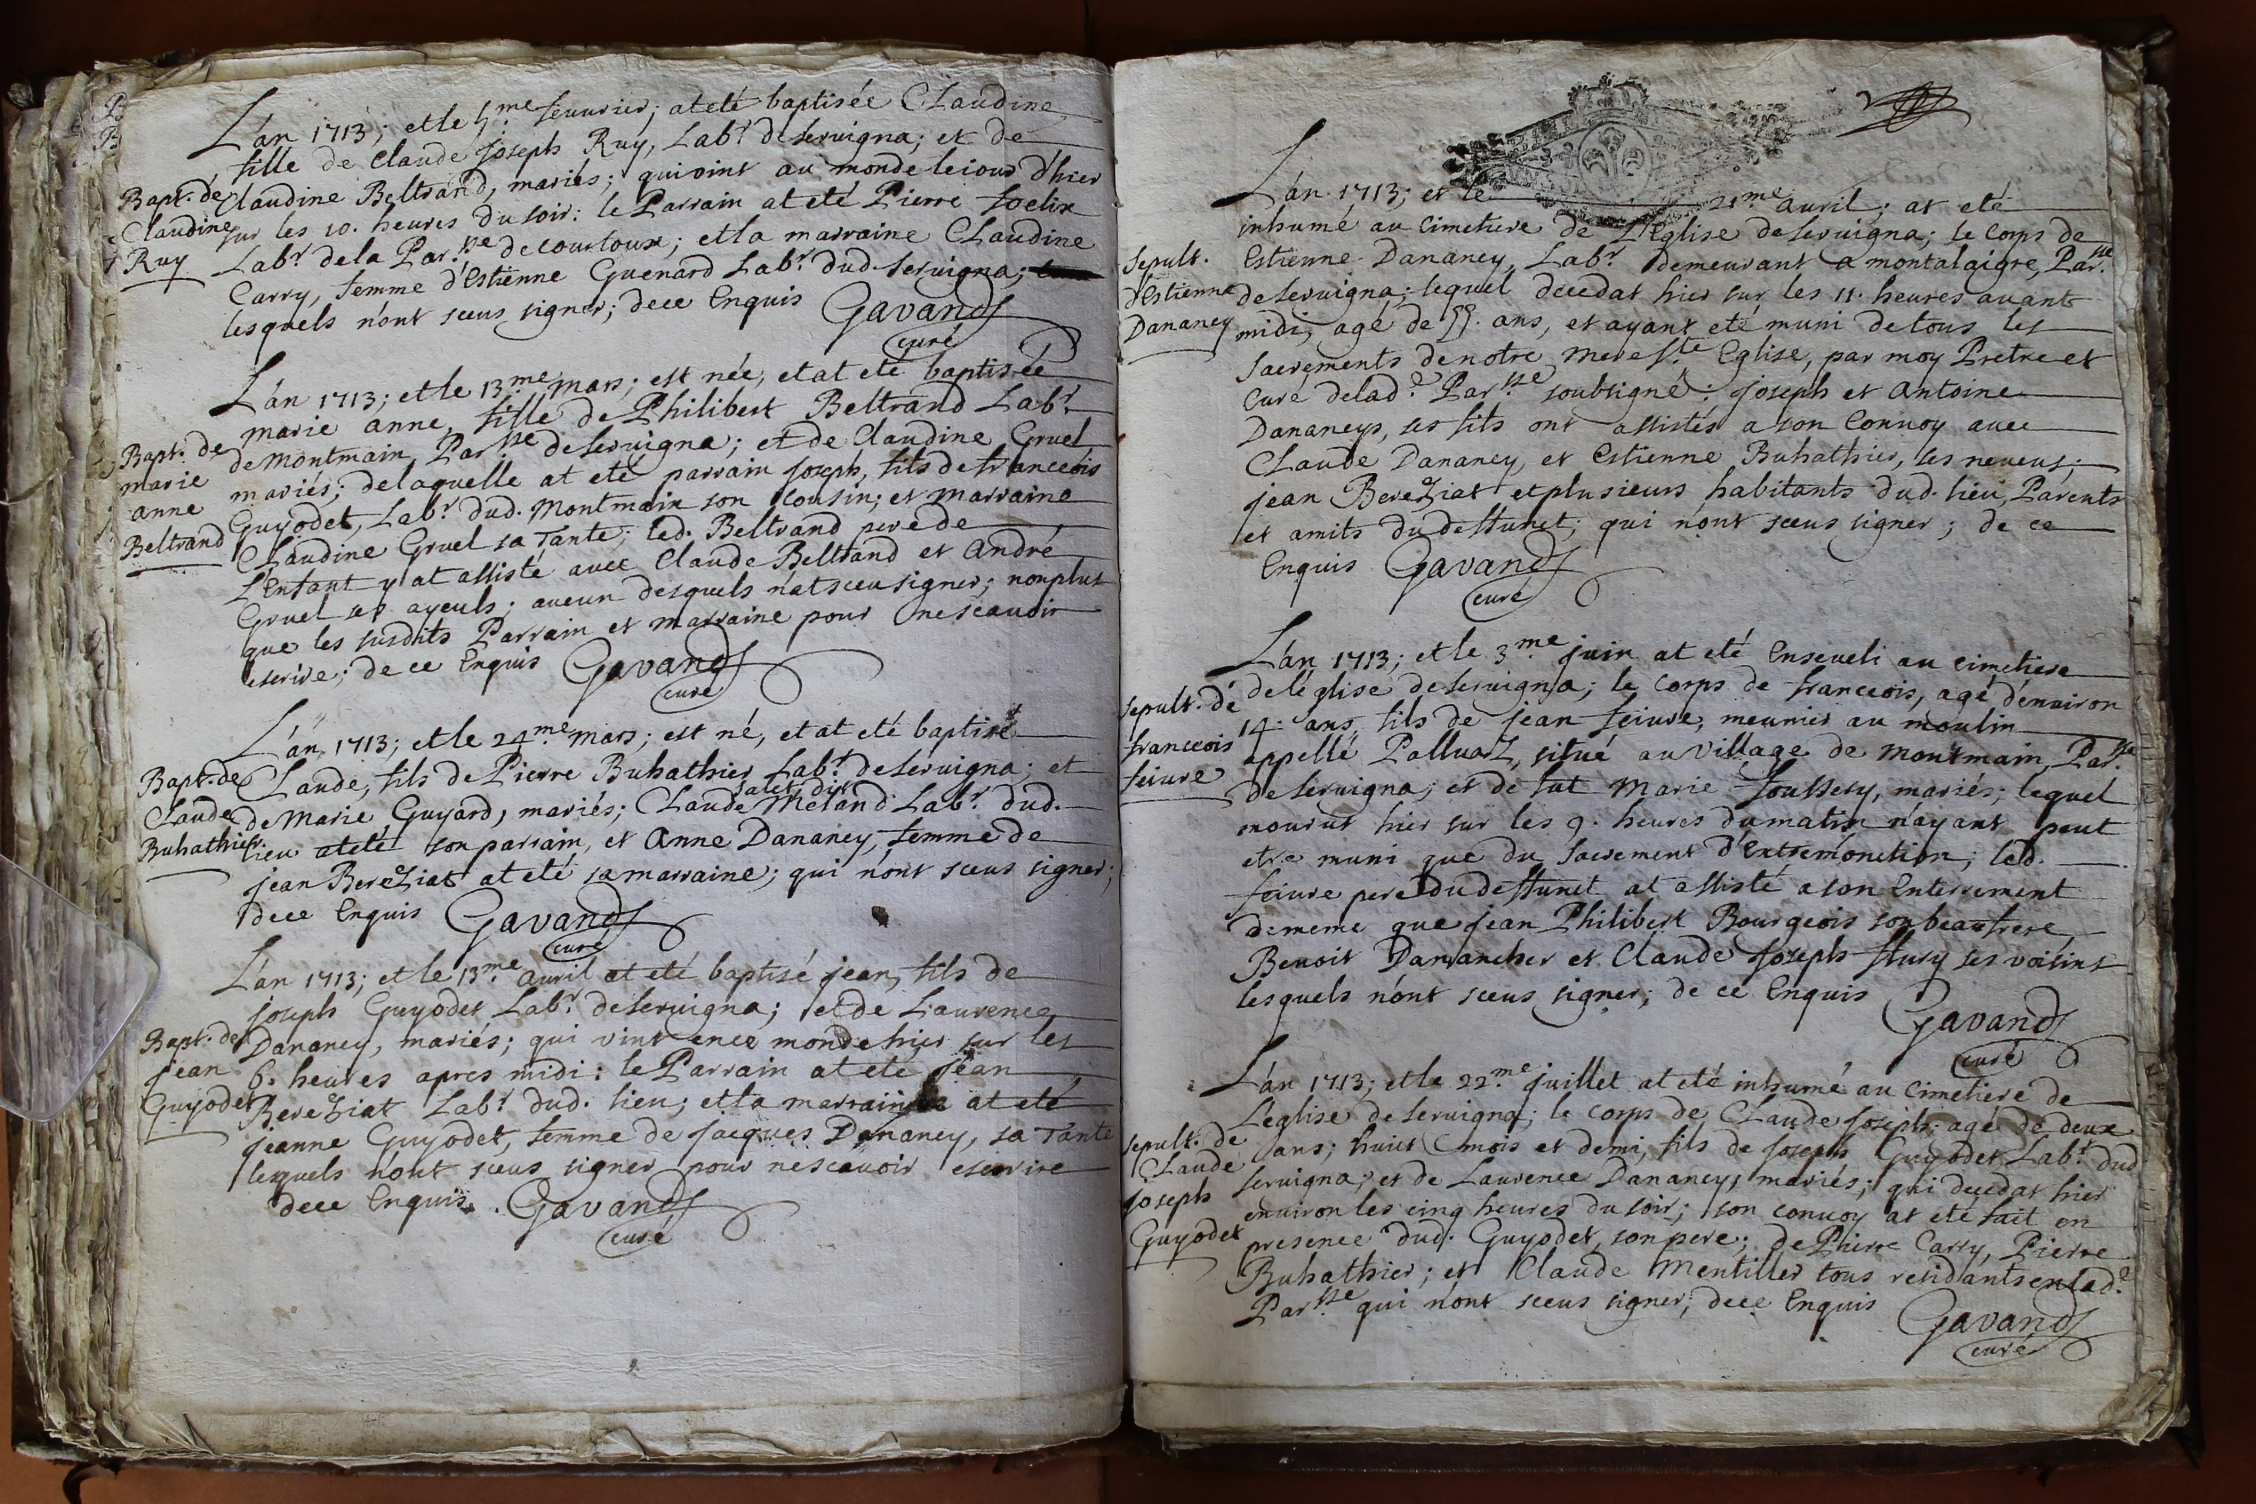 L'an 1713; et le 5.me feuurier; at eté baptisée Claudine
fille de Claude Joseph Ruy, Lab.r de Seruigna; et de
Claudine Beltrand, mariés; qui vint au monde le iour d'hier
sur les 10. heures du soir: le Parrain at eté Pierre foelix
Lab.r de la Par.sse de Courtoux; et la marraine Claudine
Carry, femme d'Estienne Guenard Lab.r dud. Seruigna;
lesquels n'ont sceus signer; de ce Enquis Gavand
curé
Bapt. de
Claudine
Ruy
L'an 1713; et le 13.me mars; est née, et at eté baptisée
marie anne, fille de Philibert Beltrand Lab.r
de Montmain, Par.sse de Seruigna; et de Claudine Gruel
mariés; de laquelle at eté parrain Joseph, fils de franceois
Guyodet, Lab.r dud. Montmain son Cousin; et marraine
Claudine Gruel sa Tante; led. Beltrand pere de
L'Enfant y at assisté avec Claude Beltrand et André
Gruel ses ayeuls; aucun desquels n'at sceu signer; non plus
que les susdits Parrain et marraine pour ne scauoir
escrire; de ce Enquis Gavand
curé
Bapt. de
marie
anne
Beltrand
L'an 1713; et le 24.me mars; est né, et at eté baptisé
Claude, fils de Pierre Buhathier Lab.r de Seruigna; et
de Marie Guyard, mariés; Claude Meland Lab.r dud.
lieu at eté son parrain, et Anne Dananey, femme de
jean Bereziat at eté sa marraine; qui n'ont sceus signer;
de ce Enquis Gavand
curé
Bapt. de
Claude
Buhathier
L'an 1713; et le 13.me auril at eté baptisé jean, fils de
joseph Guyodet Lab.r de Seruigna; et de Laurence
Dananey, mariés; qui vint en ce monde hier sur les
6. heures apres midi: le Parrain at eté jean
Bereziat Lab.r dud. lieu; et la marraine at eté
jeanne Guyodet, femme de jacques Dananey, sa Tante
lesquels n'ont sceus signer pour ne scauoir escrire
de ce Enquis. Gavand
curé
Bapt. de
jean
Guyodet
L'an 1713; et le 21.me auril; at eté
inhumé au Cimetiere de L'Eglise de Seruigna; le Corps de
Estienne Dananey, Lab.r demeurant a montalaigre, Par.sse
de Seruigna; lequel decedat hier sur les 11. heures auant
midi, agé de 55. ans, et ayant eté muni de tous les
Sacrements de notre mere S.te Eglise, par moy Pretre et
Curé de lad.e Par.sse soubsigné: joseph et Antoine
Dananeys, ses fils ont assistés a son Conuoy auec
Claude Dananey, et Estienne Buhathier, ses neveus;
jean Bereziat et plusieurs habitants dud. lieu, Parents
et amits du deffunct; qui n'ont sceus signer; de ce
Enquis Gavand
curé
Sepult.
d'Estienne
Dananey
L'an 1713; et le 3.me juin at eté Enseueli au cimetiere
de l'église de Seruigna; le Corps de franceois, agé d'enuiron
14. ans, fils de jean feiure, meunier au moulin
appellé Palluaz, situé au Village de Montmain, Par.sse
de Seruigna; et de fut Marie Foussery, mariés; lequel
mourut hier sur les 9. heures du matin n'ayant peut
etre muni que du Sacrement d'Extremonction; led.
feiure pere du deffunct at assisté a son Enterrement
de meme que jean Philibert Bourgeois son beaufrere
Benoit Damancher et Claude Joseph flury ses voisins
lesquels n'ont sceus signer; de ce Enquis
Gavand
curé
Sepult. de
franceois
feiure
L'an 1713; et le 22.me juillet at eté inhumé au Cimetiere de
L'eglise de Seruigna; le Corps de Claude Joseph: agé de deux
ans; huict mois et demi, fils de Joseph Guyodet Lab.r dud.
Seruigna; et de Laurence Dananey, mariés; qui decedat hier
enuiron les cinq heures du soir; son conuoy at eté fait en
presence dud. Guyodet, son pere; de Phierre Carry, Pierre
Buhathier; et Claude Mentiller tous residants en lad.e
Par.sse qui n'ont sceus signer; de ce Enquis
Gavand
curé
Sepult. de
Claude
Joseph
Guyodet